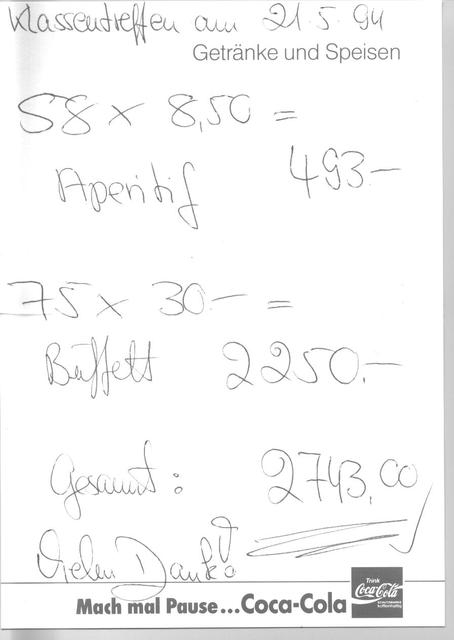 Klassentreffen am 21.5.94
Getränke und Speisen
58 x 8,50 =
Aperitif 493.-
75 x 30.- =
Büffett 2250.-
Gesamt: 2743,00
Vielen Dank!
Mach mal Pause...Coca-Cola
Trink
Coca-Cola
koffeinhaltig